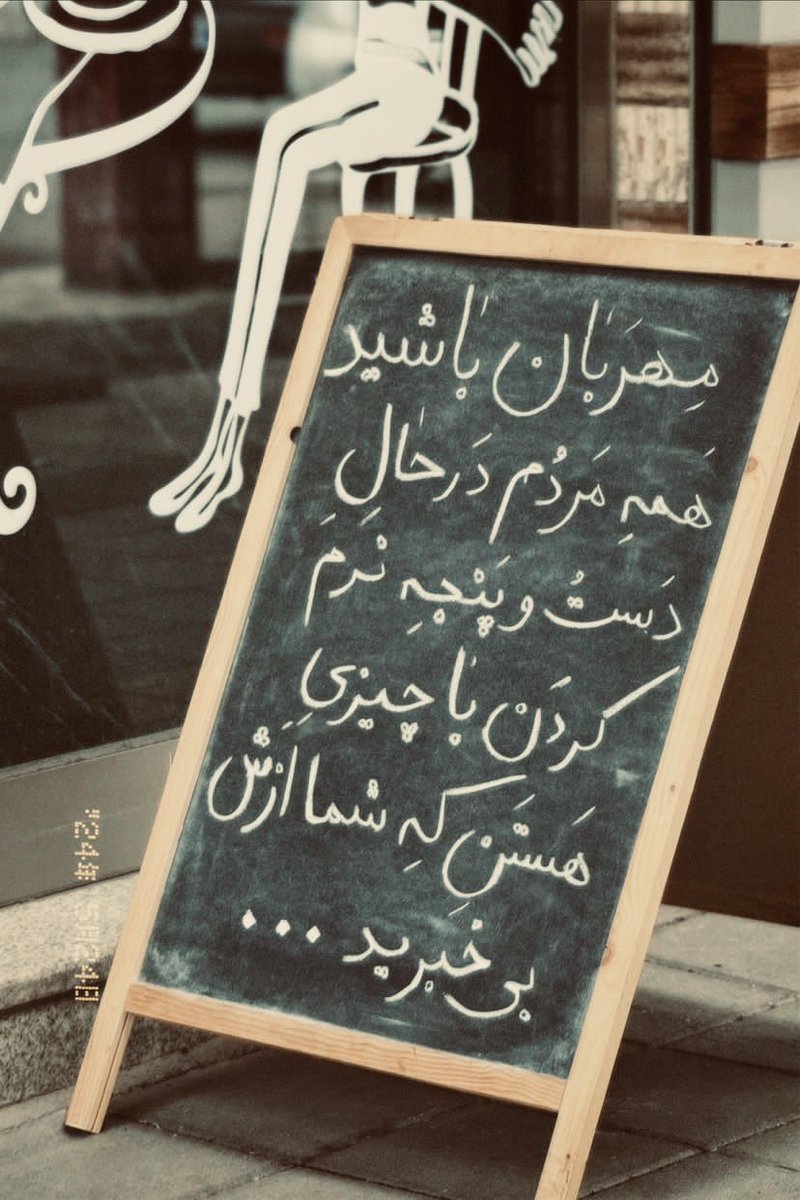 مِهرَبان باشید
هَمهِ مَردُم دَرحالِ
دَست و پَنْجهِ نَرم
کردَن با چیزیِ
هَستَن کهِ شما اَزَش
بی خَبرید ...